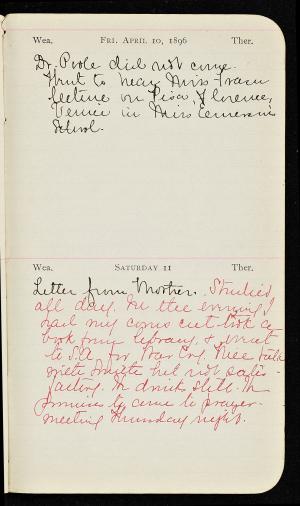 Wea. FRI. APRIL 10, 1896 Ther.
Dr. Poole did not come.
Went to hear Miss
lecture on Pisa, Florence,
Venice in Miss Emerson's
School.
Wea. SATURDAY 11 Ther.
Letter from Mother. Studied
all day. In the evening I
had my corns cut took a
book from library, & went
to S.A. for War Cry. Mee
but not satis-
factory. He drinks still. He
promises to come to prayer-
meeting Thursday night.